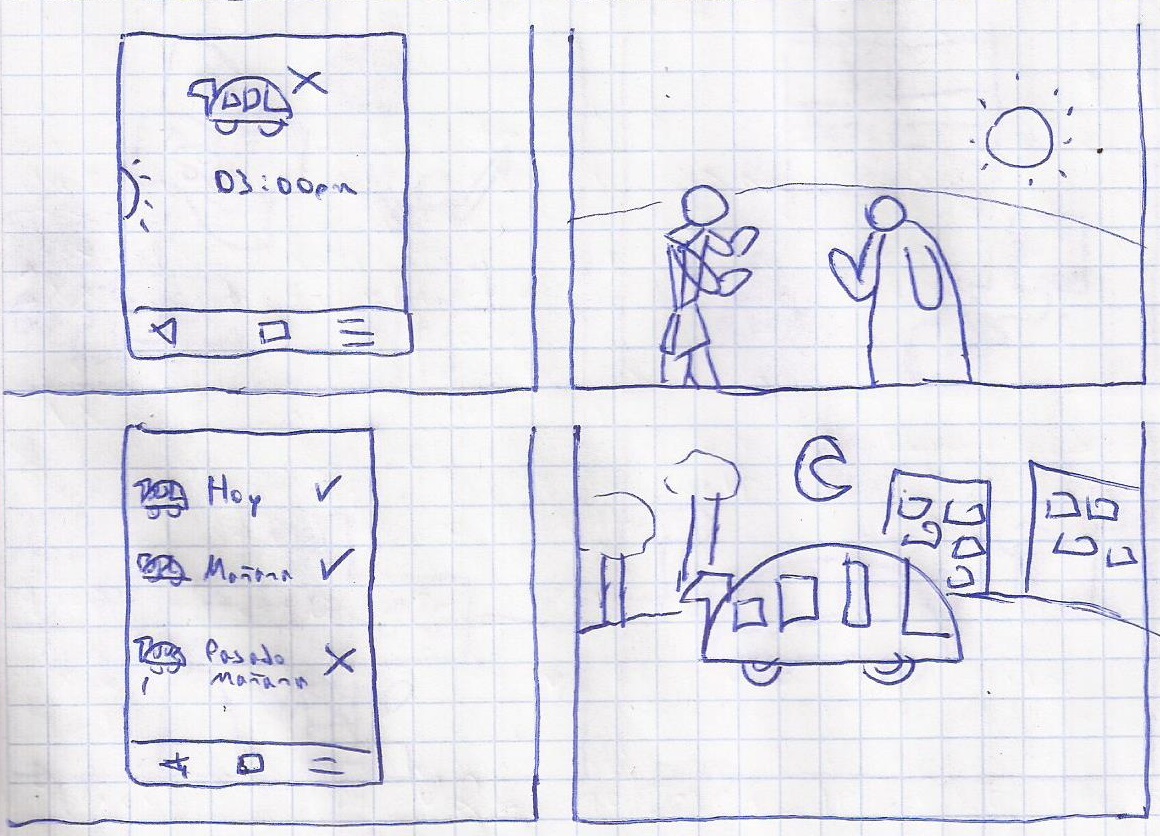 03:00pm
Hoy
Mañana
Pasado
Mañana